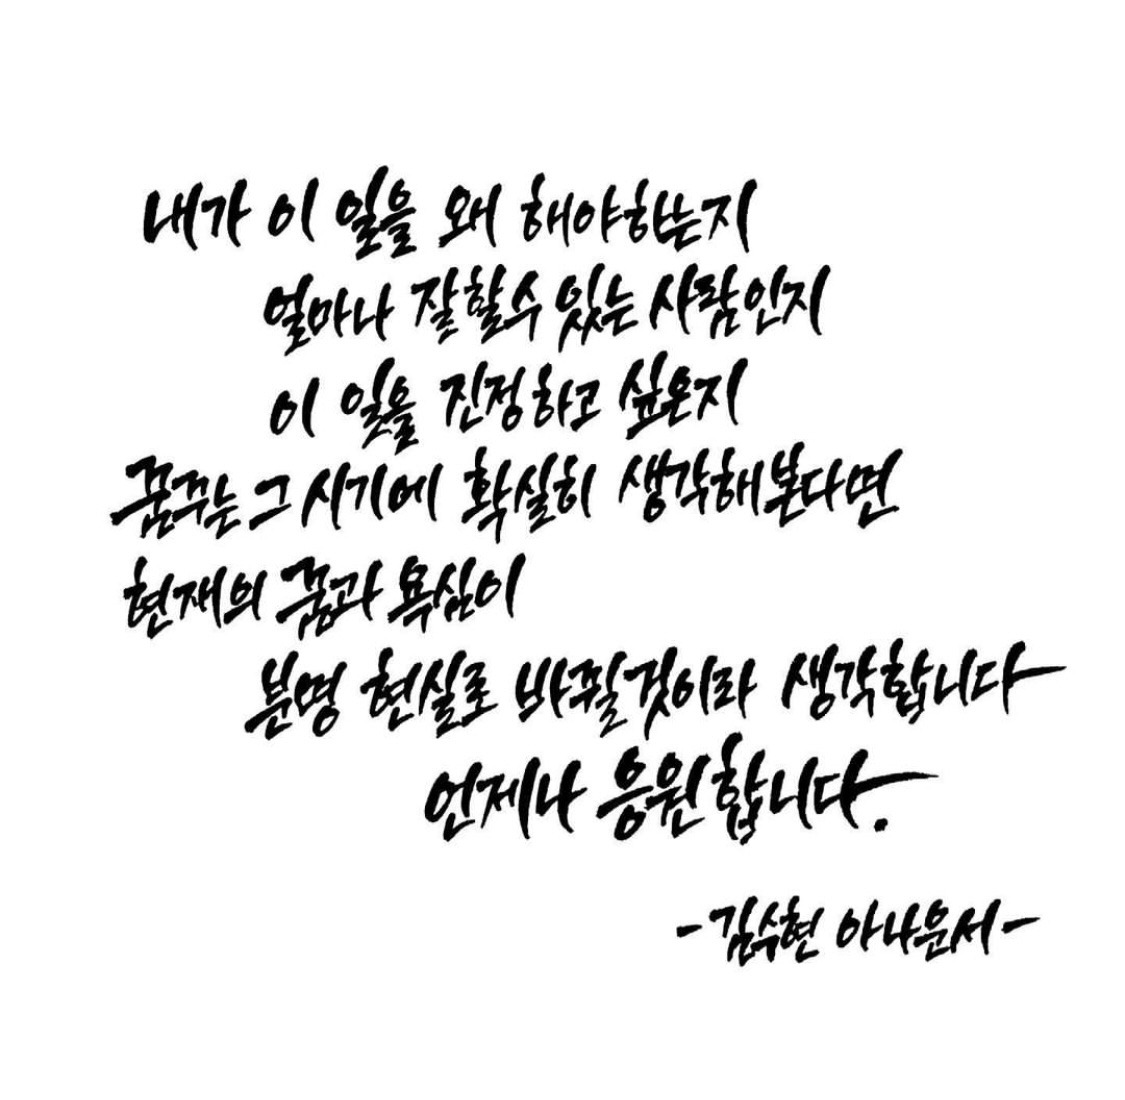 내가 이 일을 왜 해야하는지
얼마나 잘할수 있는 사람인지
이 일을 진정하고 싶은지
꿈꾸는 그 시기에 확실히 생각해본다면
현재의 꿈과 욕심이
분명 현실로 바뀔것이라 생각합니다
언제나 응원합니다.
-김수현 아나운서-